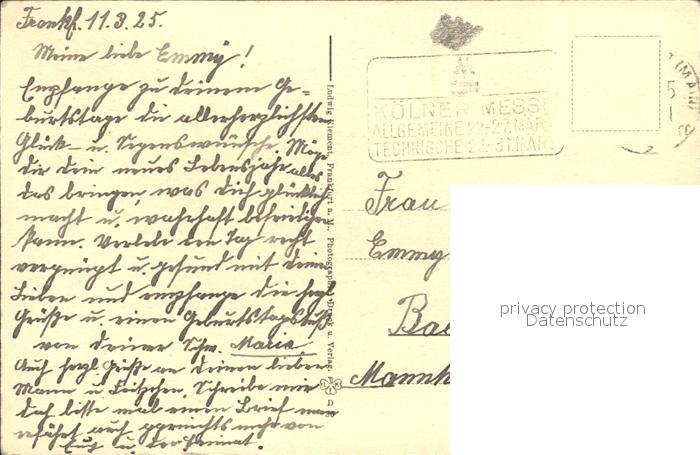 Frankf. 11.3.25.
Meine liebe Emmy!
Empfange zu deinem Ge-
burtstage die allerherzlichsten
Glück- u. Segenswünsche, Möge
dir dein neues Lebensjahr alles
das bringen, was dich glücklich
macht u. wahrhaft befriedigen
kann. Verlebe den Tag recht
vergnügt u. gesund mit deinen
Lieben und empfange die herzl.
Grüße u. einen Geburtstagskuß
von deiner Schw. Maria
Auch herzl. Grüße an deinen lieben
Mann u. Fritzchen. Schreibe mir
doch bitte mal einen Brief man
erfährt auch garnichts mehr von
Euch u. der Heimat.
Ludwig Klement, Frankfurt a. M., Photograph. Druck u. Verlag.
D
KÖLNER MESSE
ALLGEMEINE 22-27. MÄR
TECHNISCHE 22-31. MÄR
(MAIN)
Frau
Emmy
Bac
Mannh
privacy protection
Datenschutz